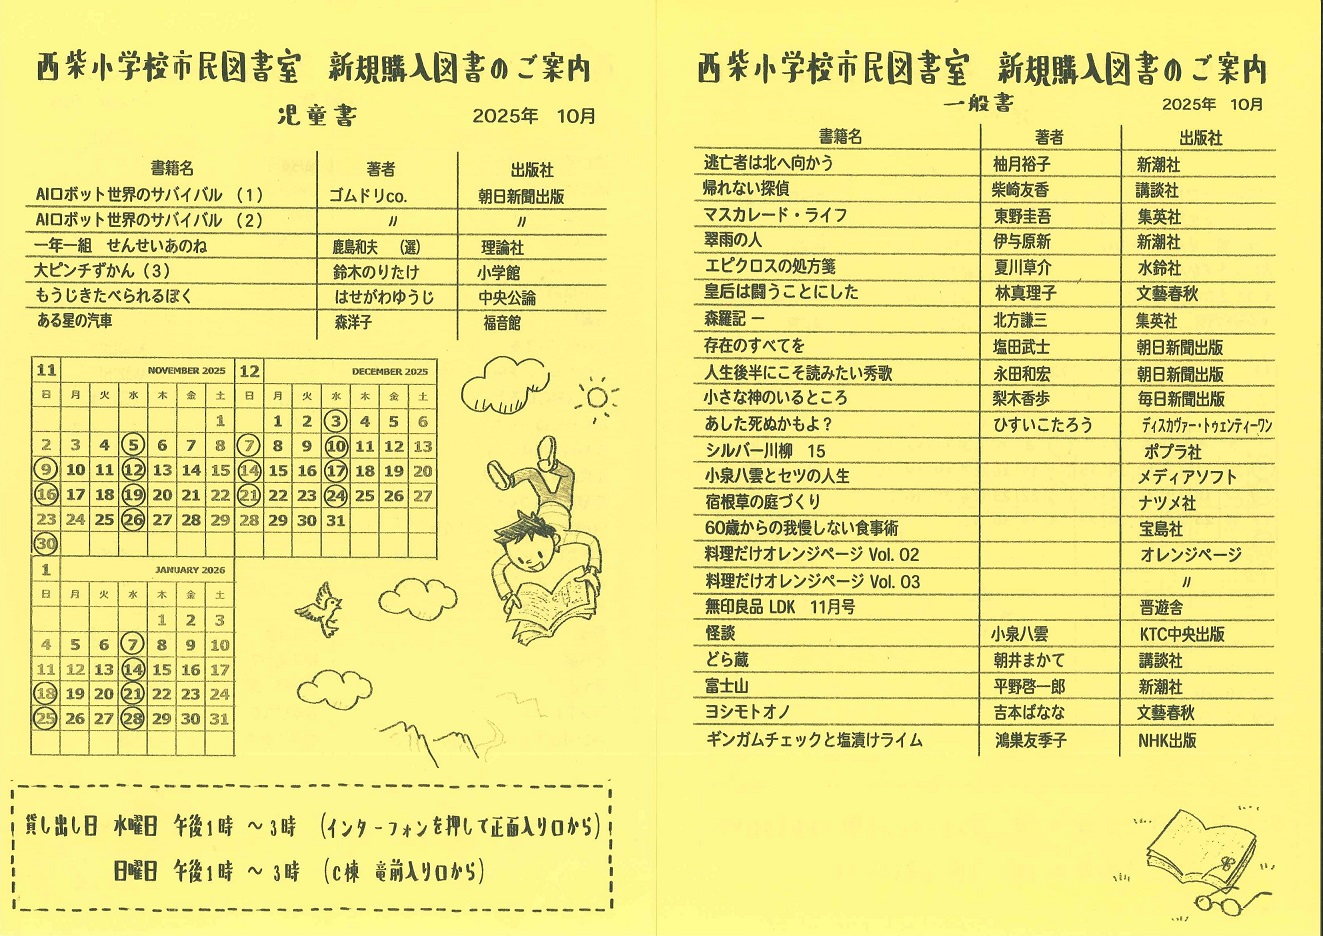 西柴小学校市民図書室 新規購入図書のご案内
児童書 2025年 10月
書籍名 著者 出版社
AIロボット世界のサバイバル (1) ゴムドリco. 朝日新聞出版
AIロボット世界のサバイバル (2) 〃 〃
一年一組 せんせいあのね 鹿島和夫 (選) 理論社
大ピンチずかん(3) 鈴木のりたけ 小学館
もうじきたべられるぼく はせがわゆうじ 中央公論
ある星の汽車 森洋子 福音館
11 NOVEMBER 2025 12 DECEMBER 2025
日 月 火 水 木 金 土 日 月 火 水 木 金 土
1 1 2 3 4 5 6
2 3 4 5 6 7 8 7 8 9 10 11 12 13
9 10 11 12 13 14 15 14 15 16 17 18 19 20
16 17 18 19 20 21 22 21 22 23 24 25 26 27
23 24 25 26 27 28 29 28 29 30 31
30
1 JANUARY 2026
日 月 火 水 木 金 土
1 2 3
4 5 6 7 8 9 10
11 12 13 14 15 16 17
18 19 20 21 22 23 24
25 26 27 28 29 30 31
貸し出し日 水曜日 午後1時 ～3時 (インターフォンを押して正面入り口から)
日曜日 午後1時 ～ 3時 (C棟 竜前入り口から)
西柴小学校市民図書室 新規購入図書のご案内
一般書 2025年 10月
書籍名 著者 出版社
逃亡者は北へ向かう 柚月裕子 新潮社
帰れない探偵 柴崎友香 講談社
マスカレード・ライフ 東野圭吾 集英社
翠雨の人 伊与原新 新潮社
エピクロスの処方箋 夏川草介 水鈴社
皇后は闘うことにした 林真理子 文藝春秋
森羅記 一 北方謙三 集英社
存在のすべてを 塩田武士 朝日新聞出版
人生後半にこそ読みたい秀歌 永田和宏 朝日新聞出版
小さな神のいるところ 梨木香歩 毎日新聞出版
あした死ぬかもよ? ひすいこたろう ディスカヴァー・トゥエンティーワン
シルバー川柳 15 ポプラ社
小泉八雲とセツの人生 メディアソフト
宿根草の庭づくり ナツメ社
60歳からの我慢しない食事術 宝島社
料理だけオレンジページ Vol. 02 オレンジページ
料理だけオレンジページ Vol. 03 〃
無印良品 LDK 11月号 晋遊舎
怪談 小泉八雲 KTC中央出版
どら蔵 朝井まかて 講談社
富士山 平野啓一郎 新潮社
ヨシモトオノ 吉本ばなな 文藝春秋
ギンガムチェックと塩漬けライム 鴻巣友季子 NHK出版